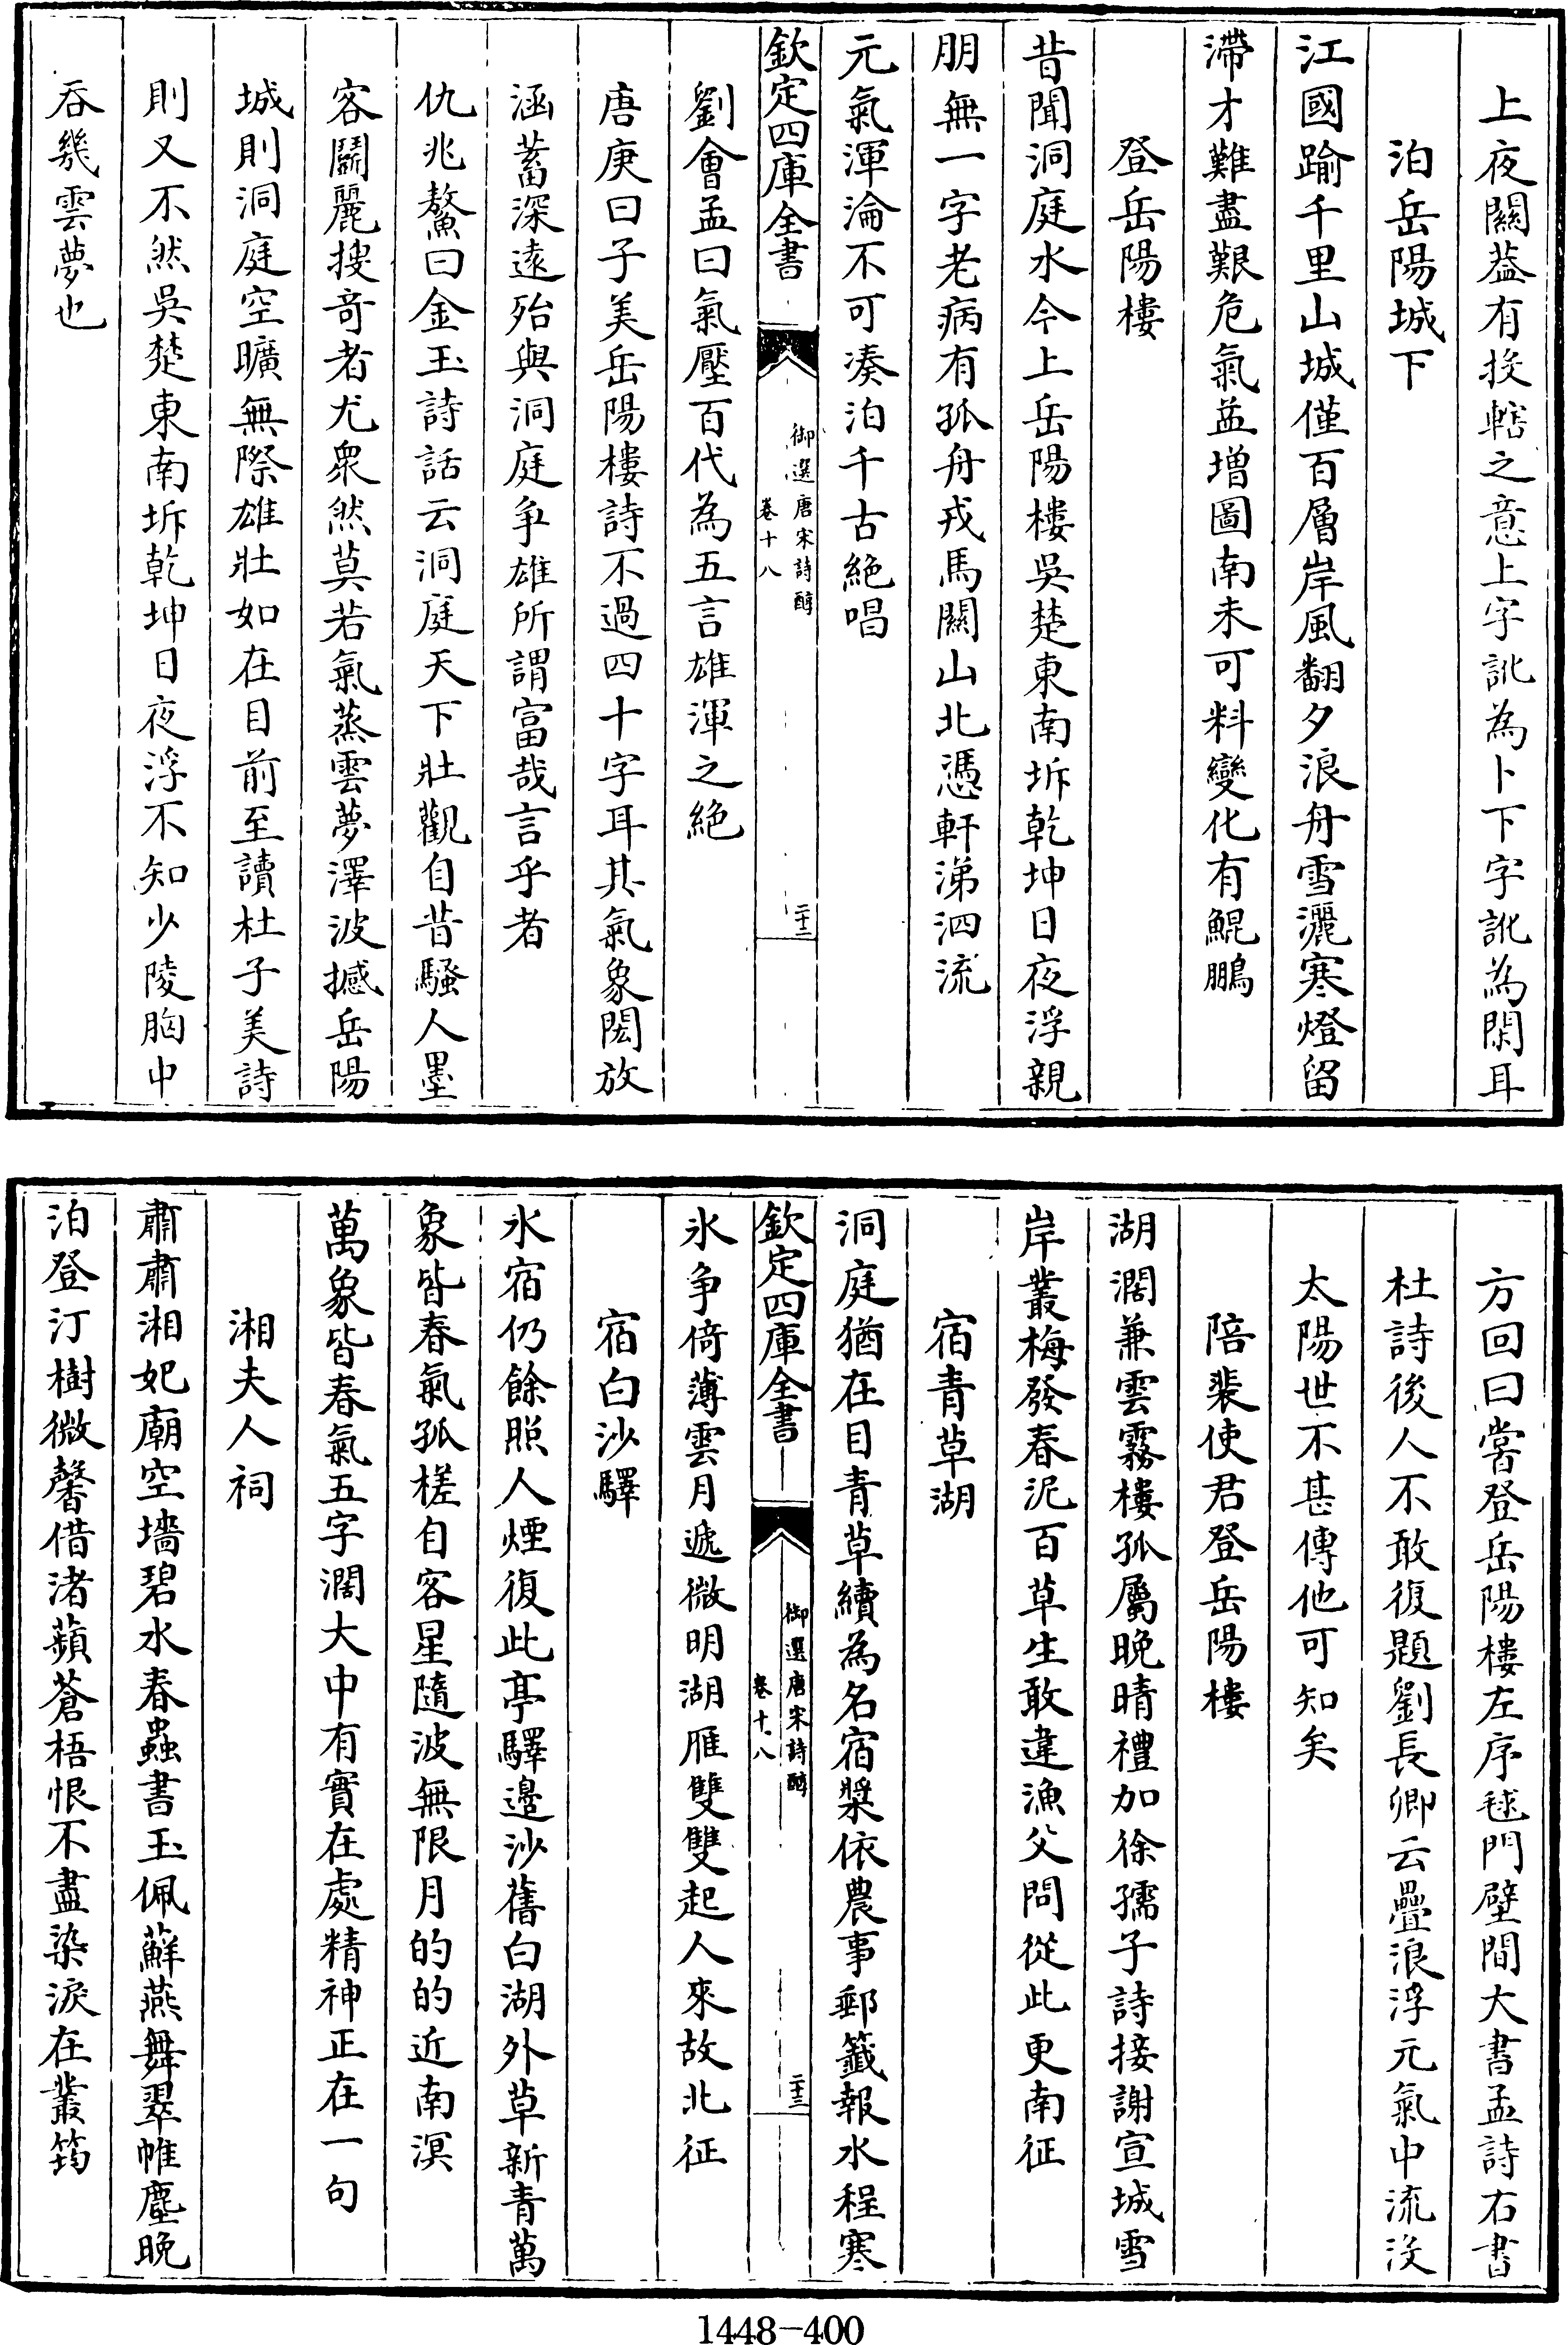 上夜闗葢有投轄之意上字訛為卜下字訛為閑耳
泊岳陽城下
江國踰千里山城僅百層岸風翻夕浪舟雪灑寒燈留
滯才難盡艱危氣益增圖南未可料變化有鯤鵬
登岳陽樓
昔聞洞庭水今上岳陽樓吳楚東南坼乾坤日夜浮親
朋無一字老病有孤舟戎馬關山北憑軒涕泗流
元氣渾淪不可凑泊千古絶唱
欽定四庫全書
御選唐宋詩醇
卷十八
二十二
劉會孟曰氣壓百代為五言雄渾之絶
唐庚曰子美岳陽樓詩不過四十字耳其氣象閎放
涵蓄深遠殆與洞庭爭雄所謂富哉言乎者
仇兆鰲曰金玉詩話云洞庭天下壯觀自昔騷人墨
客鬭麗搜奇者尤衆然莫若氣蒸雲夢澤波撼岳陽
城則洞庭空曠無際雄壯如在目前至讀杜子美詩
則又不然吳楚東南坼乾坤日夜浮不知少陵胸中
吞幾雲夢也
方回曰嘗登岳陽樓左序毬門壁間大書孟詩右書
杜詩後人不敢復題劉長卿云疊浪浮元氣中流没
太陽世不甚傳他可知矣
陪裴使君登岳陽樓
湖濶兼雲霧樓孤屬晚晴禮加徐孺子詩接謝宣城雪
岸叢梅發春泥百草生敢違漁父問從此更南征
宿青草湖
洞庭猶在目青草續為名宿槳依農事郵籤報水程寒
欽定四庫全書
御選唐宋詩醇
卷十八
二十三
氷争倚薄雲月遞微明湖雁雙雙起人來故北征
宿白沙驛
水宿仍餘照人煙復此亭驛邉沙舊白湖外草新青萬
象皆春氣孤槎自客星隨波無限月的的近南溟
萬象皆春氣五字濶大中有實在處精神正在一句
湘夫人祠
肅肅湘妃廟空墻碧水春蟲書玉佩蘚燕舞翠帷塵晚
泊登汀樹微馨借渚蘋蒼梧恨不盡染淚在叢筠
1448-400